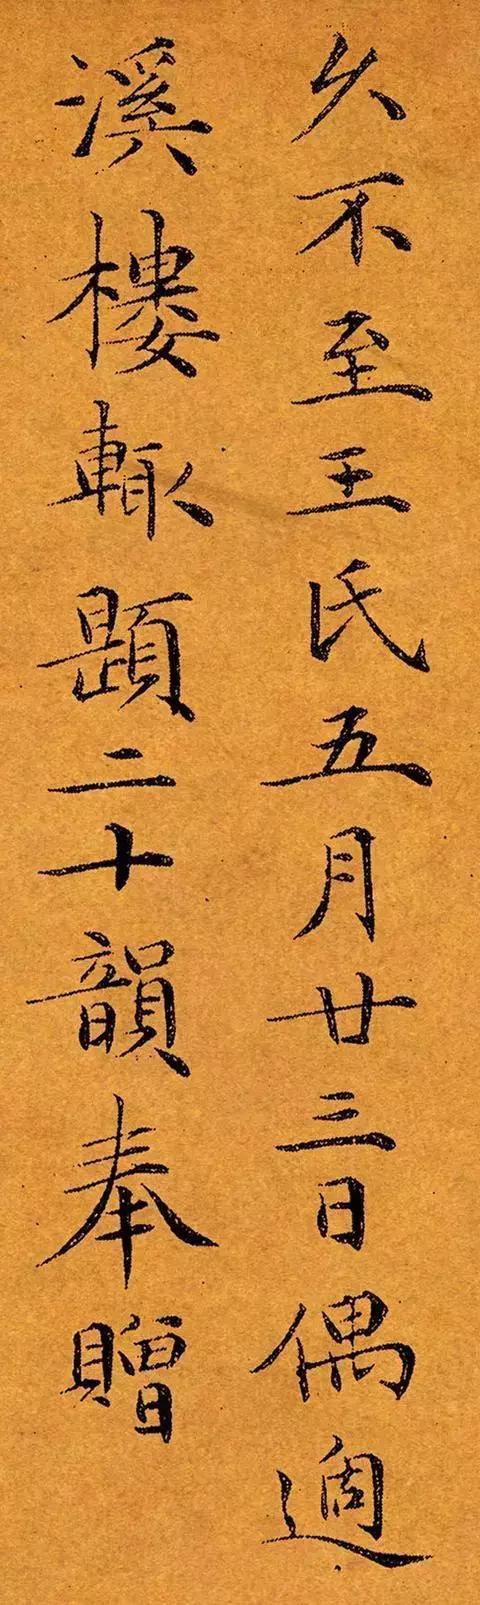 久不至王氏五月廿三日偶過
溪樓輙題二十韻奉贈